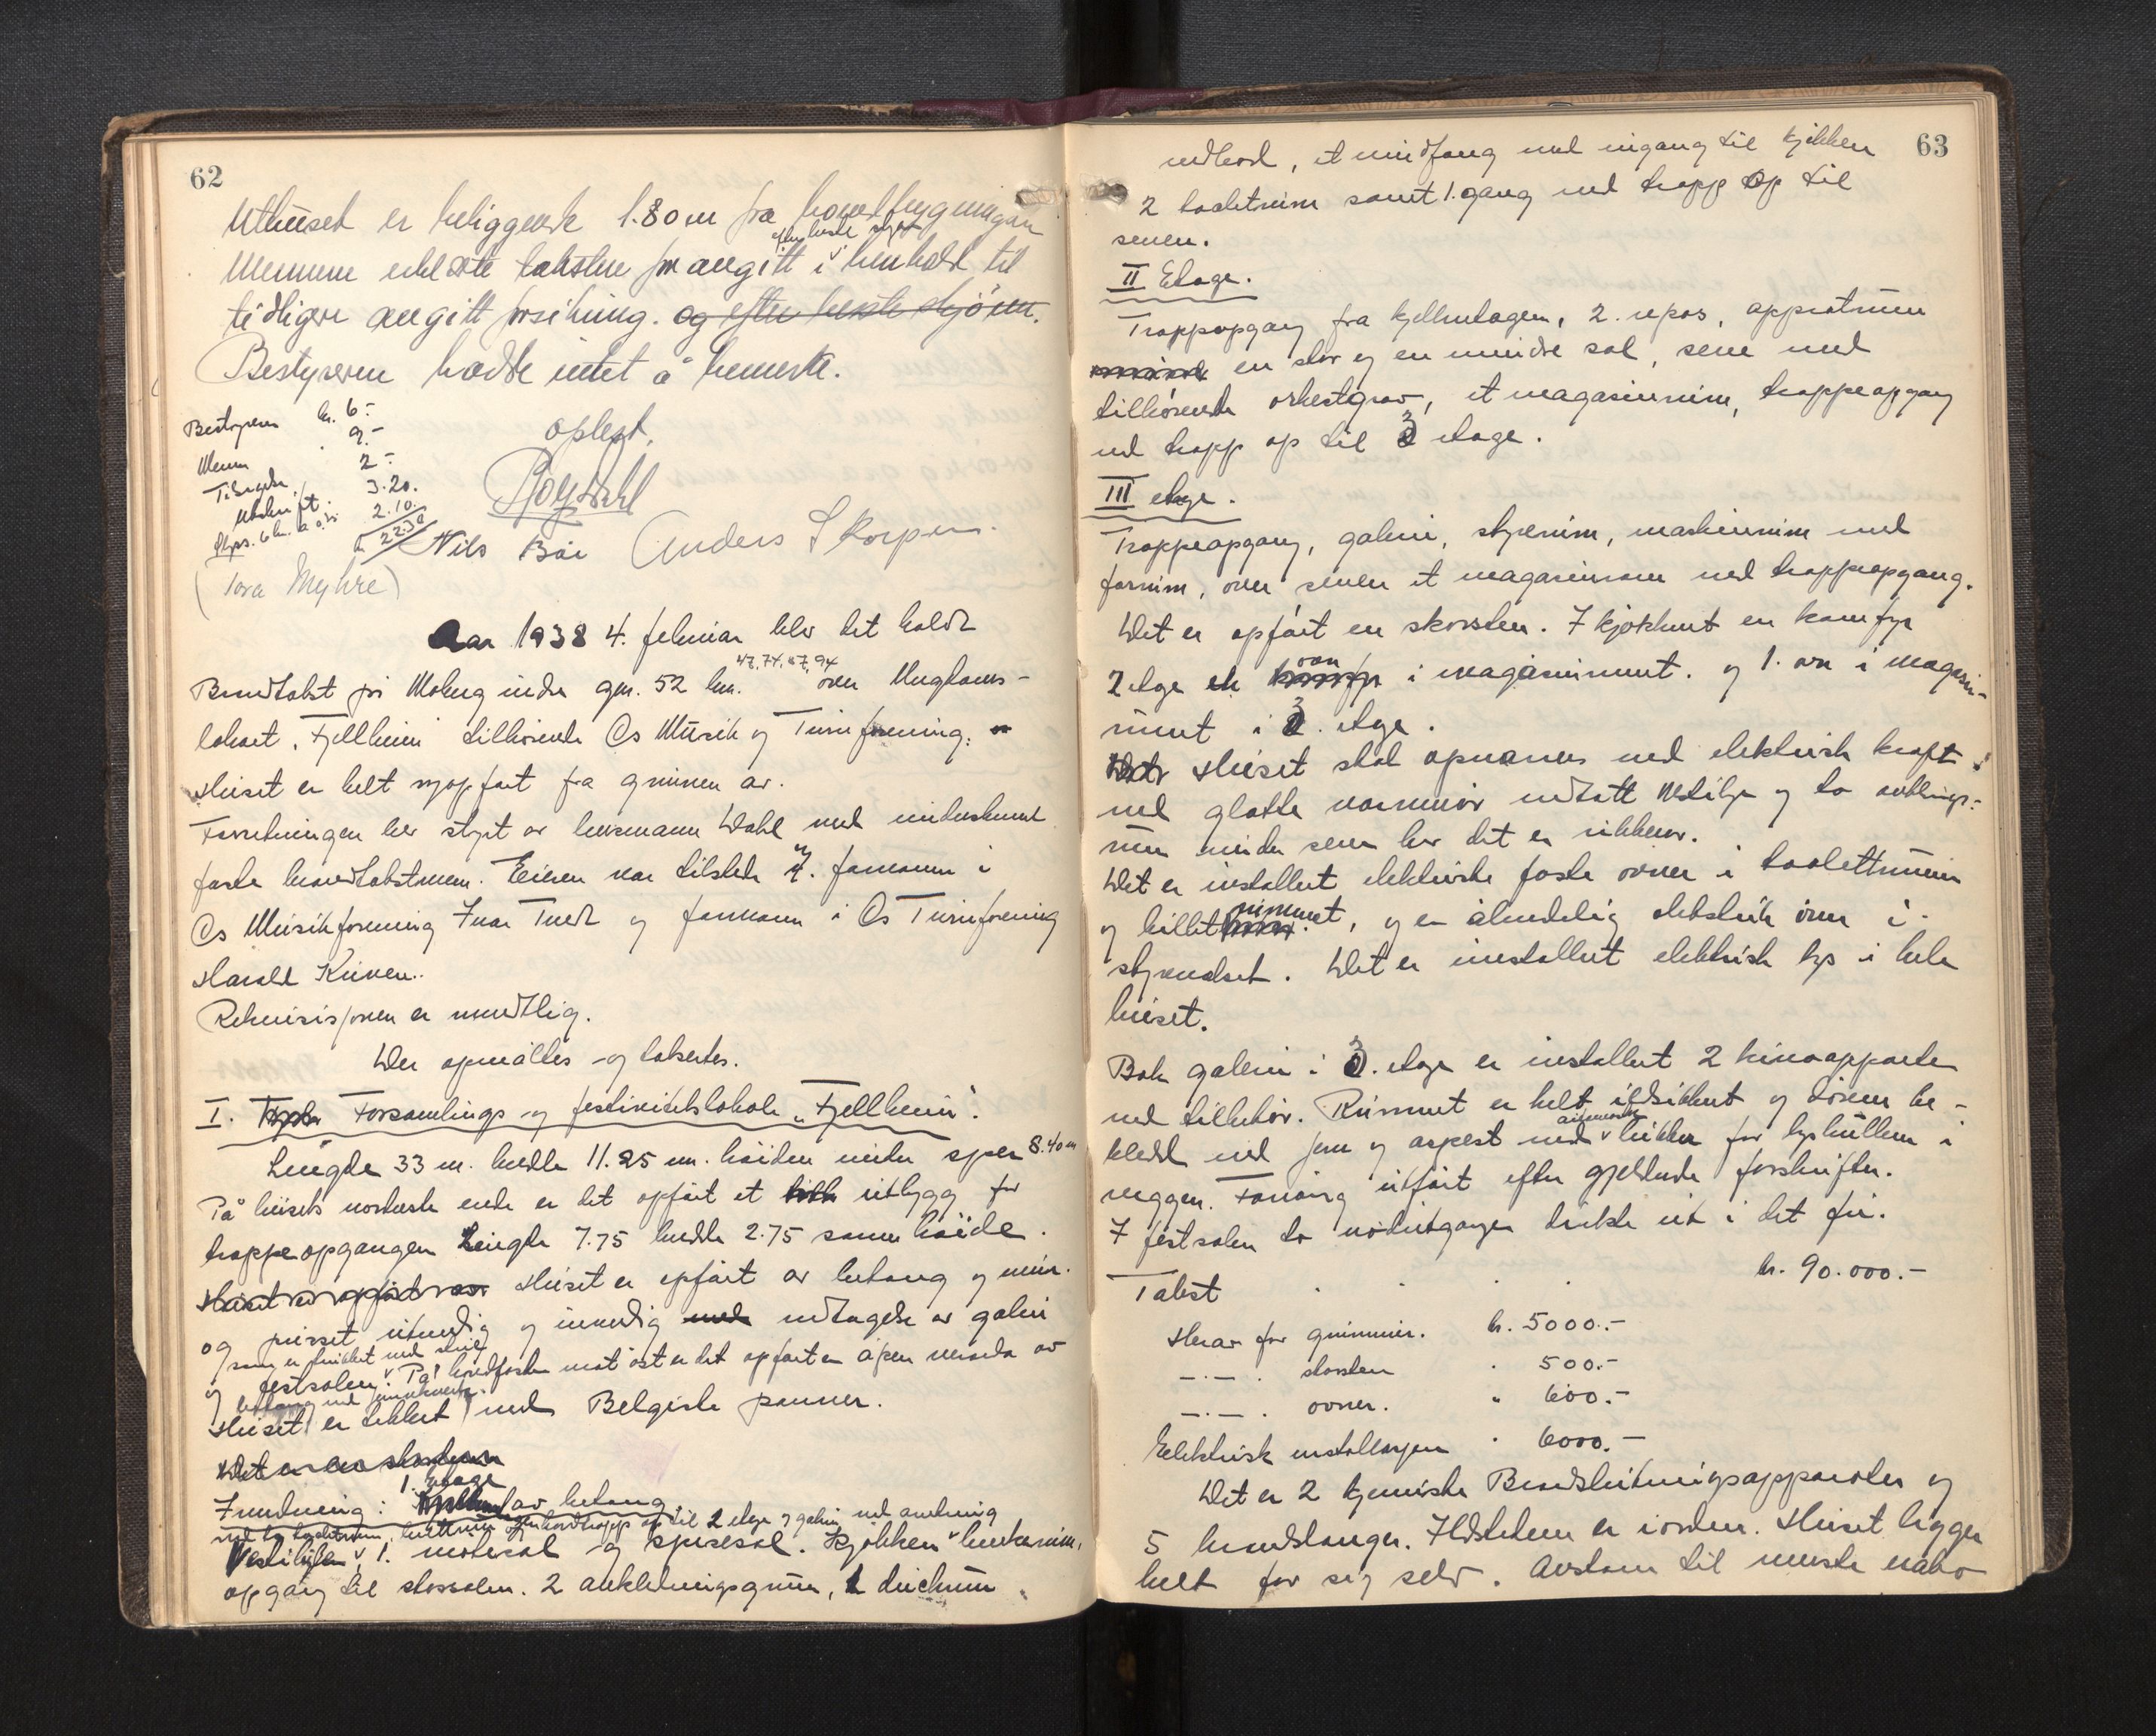 62
Uthuset er beliggende 1.80 m fra hovedbygningen
efter beste skjøn
Mennene erklærte taksten for angitt i henhold til
tidligere angitt forsikring. og efter beste skjönn.
Bestyreren hadde intet å bemerke.
Bestyreren kr. 6.-
Menn " 9.-
Tilsigelse 2.-
Utskrift 3.20.
2.10.
kr 22.30
oplest.
Nils Bøe Anders Skorpen.
(Tora Myhre)
Aar 1938 4. februar blev det holdt
47, 74, 87, 94
Brandtakst på Moberg indre gnr. 52 bnr. over Ungdoms-
lokalet, Fjellheim tilhørende Os Musik og Turnforening.
Huset er helt nyopført fra grunnen av.
Forretningen blev styrt av lensmann Dahl med underskrevne
faste brandtakstmenn. Eieren var tilstede v. formann i
Os Musikforening Ivar Tveit og formann i Os Turnforening
Harald Kuven.
Rekvisisjonen er mundtlig.
Der opmåltes og takseres.
I. Forsamlings og festivitetslokale "Fjellheim".
Lengde 33 m. bredde 11.25 m. høiden under spær 8.40 m
På husets nordveste ende er det opført et utbygg for
trappeopgangen Lengde 7.75 bredde 2.75 samme høide.
Huset er opført av Huset er opført av betong og mur.
og pusset utvendig og innvendig med undtagelse av galleri
og festsalen. På hovedfasaden mot øst er det opført en åpen veranda av
betong med
Huset er tekket med Belgiske panner.
Det er en skorsten
1. etage
Inndeling: av betong
Vestibylen, 1. møtesal og spisesal. Kjøkken
opgang til storsalen. 2 avkledningsrum, 1 duschrum
63
vedbod, et vindfang med ingang til kjøkken
2 toalettrum samt 1. gang med trapp op til
scenen.
II Etage.
Trappopgang fra kjelleretagen, 2. repos,
en stor og en mindre sal, scene med
tilhørende orkestgrav, et magasinrum, trappeopgang
med trapp op til 3 etage.
III etage.
Trappeopgang, galleri, styrerum, maskinrum med
forrum, over scenen et magasinrom med trappeopgang.
Det er opført en skorsten. I kjøkkenet en komfyr
ovn
2 etage en i magasinrummet. og 1. ovn i magasin-
rumet i 3. etage.
Huset skal opvarmes med elektrisk kraft
med glatte varmerør undtatt vestibyle og to avklednings-
rum under scenen hvor det er ribberør.
Det er installert elektriske faste ovner i toalettrummene
og billetrummet, og en almindelig elektrisk ovn i
styreværelset. Det er installert elektrisk lys i hele
huset.
Bak galleri i 3. etage er installert 2 kinoapparater
med tilbehør. Rummet er helt ildsikkert og dören be-
kledd med jern og aspest med lukker for lyshullene i
veggen. Forøvrig utført efter gjeldende forskrifter.
I festsalen to nødutganger direkte ut i det fri.
Takst kr. 90.000.-
Herav for grunnmur. kr. 5000.-
-.-. skorsten " 500.-
-.-. ovner. " 600.-
Elektrisk installasjon " 6000.-
Det er 2 kjemiske Brandslukningsapparater og
5 brandslanger. Ildstedene er i orden. Huset ligger
helt for sig selv. Avstand til nærmeste nabo